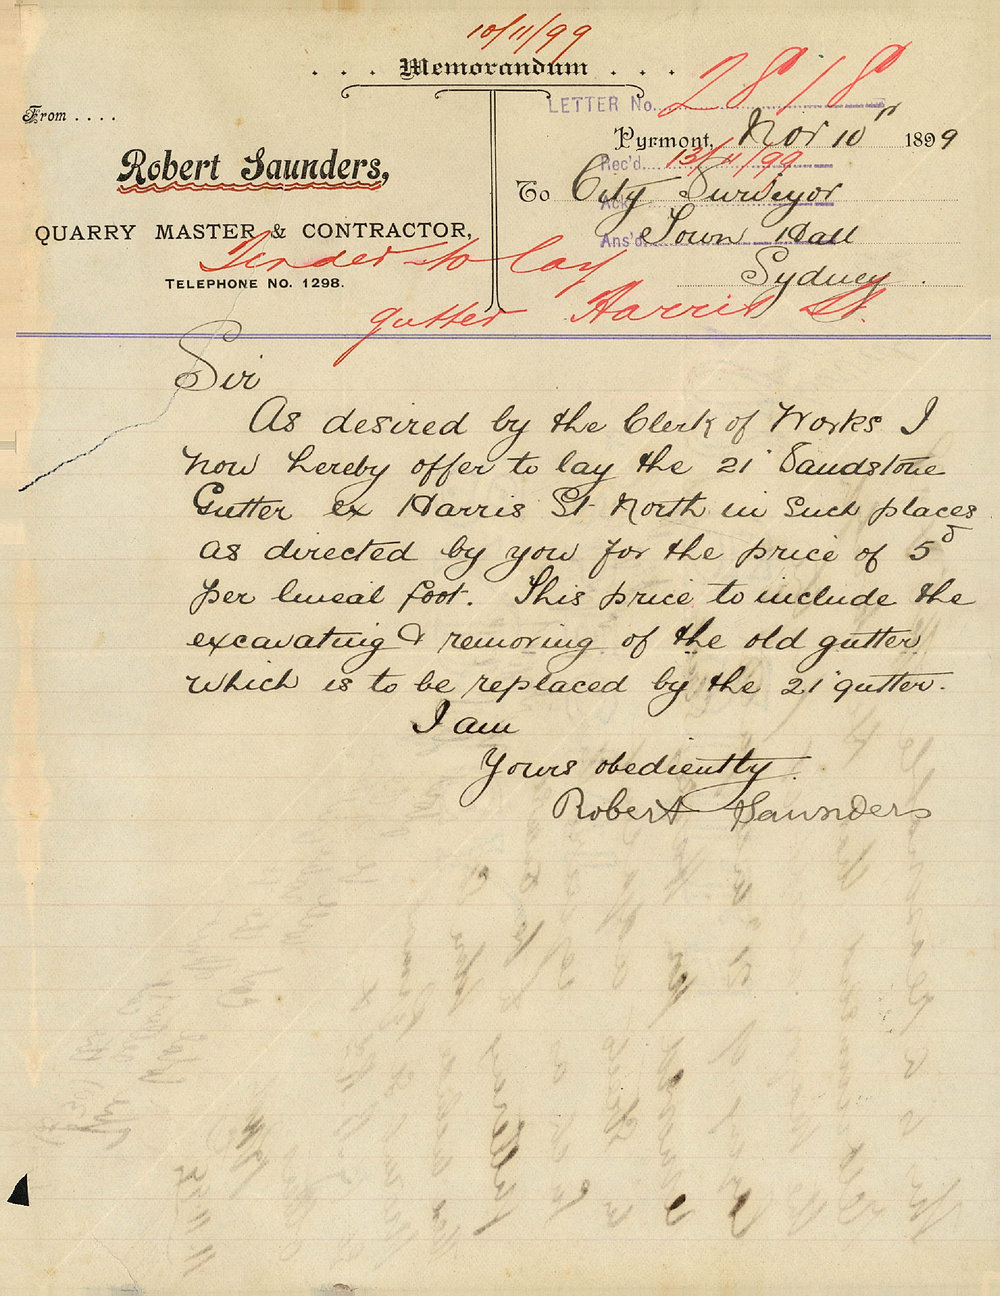 10/11/99
. . . Memorandum . . .
LETTER No. 2818
From . . . .
Pyrmont, Nov 10th 1899
Rec'd. 13/11/99
Robert Saunders,
To City Surveyor
Ack
QUARRY MASTER & CONTRACTOR,
Ans'd. Town Hall
Tender to lay
TELEPHONE NO. 1298.
Sydney.
gutter Harris St.
Sir
As desired by the Clerk of Works I
now hereby offer to lay the 21" Sandstone
Gutter ex Harris St North in such places
as directed by you for the price of 5d
per lineal foot. This price to include the
excavating & removing of the old gutter
which is to be replaced by the 21" gutter.
I am
Yours obediently
Robert Saunders